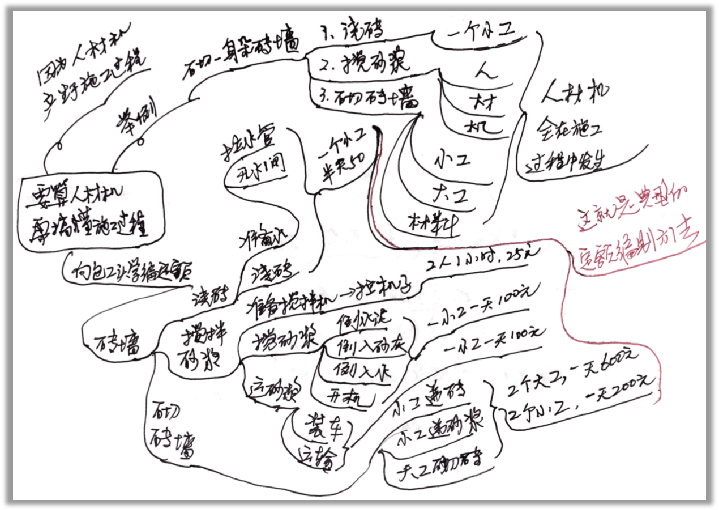 因为人材机
产生于施工过程
举例
砌一身朵砖墙
1.浇砖
2.搅砂浆
3.砌砖墙
一个小工
人
材
机
小工
大工
材料
人材机
会在施工
过程中发生
要算人材机
要搞懂施工过程
向包工头学编定额
接水管
开水闸
准备水
浇砖
一个小工
半天50
这就是典型的
定额编制方法
砖墙
浇砖
搅拌
砂浆
砌
砖墙
准备搅拌机
2人1小时,25元
搅砂浆
倒水泥
倒入砂灰
倒入水
开机
一小工一天100元
运砂浆
装车
运输
一小工一天100元
小工递砖
小工递砂浆
大工砌砖
2个大工,一天600元
2个小工,一天200元